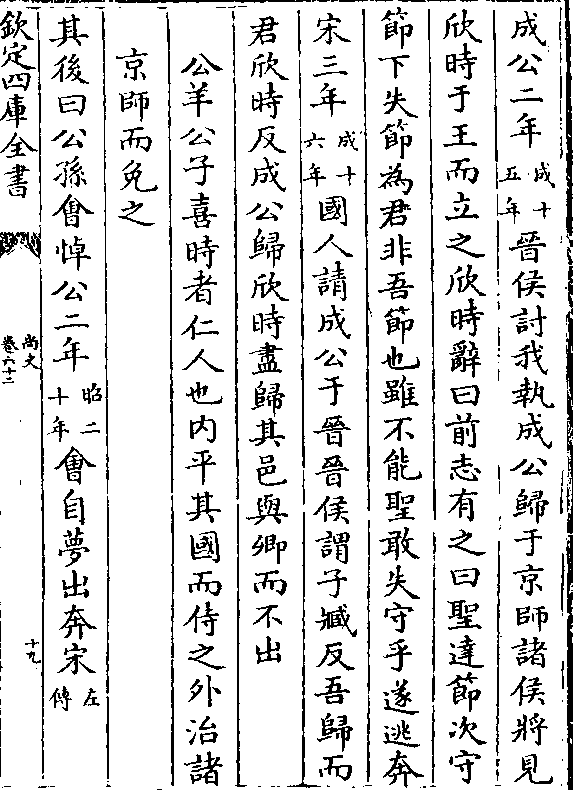 成公二年成十五年晉侯討我執成公歸于京師諸侯將見
欣時于王而立之欣時辭曰前志有之曰聖達節次守
節下失節為君非吾節也雖不能聖敢失守乎遂逃奔
宋三年成十六年國人請成公于晉晉侯謂子臧反吾歸而
君欣時反成公歸欣時盡歸其邑與卿而不出
公羊公子喜時者仁人也内平其國而侍之外治諸
京師而免之
其後曰公孫會悼公二年昭二十年會自夢出奔宋左傳
欽定四庫全書
尚史
卷六十二
十九